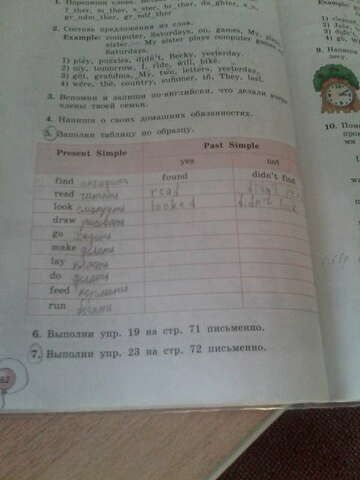 1. Пропиши слова.
f_ther, m_ther, s_ster, br_ther, da_ghter, s_n,
gr_ndm_ther, gr_ndf_ther
2. Составь предложения из слов.
Example: computer, Saturdays, on, games, My, plays,
sister. — My sister plays computer games
Saturdays.
1) play, puzzles, didn't, Becky, yesterday.
2) my, tomorrow, I, ride, will, bike.
3) got, grandma, My, two, letters, yesterday.
4) were, the, country, summer, in, They, last.
3. Вспомни и запиши по-английски, что делали вчера
члены твоей семьи.
4. Напиши о своих домашних обязанностях.
5. Заполни таблицу по образцу.
Present Simple Past Simple
yes not
find находить found didn't find
read читать read didn't
look смотреть looked didn't look
draw рисовать
go ходить
make делать
lay
do делать
feed кормить
run бежать
6. Выполни упр. 19 на стр. 71 письменно.
7. Выполни упр. 23 на стр. 72 письменно.
9. Напиши
10.